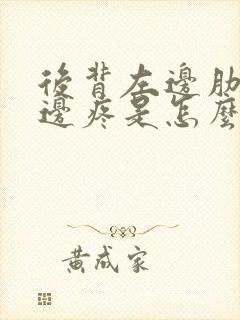 後背左邊肋
邊疼是怎麼
黃成家